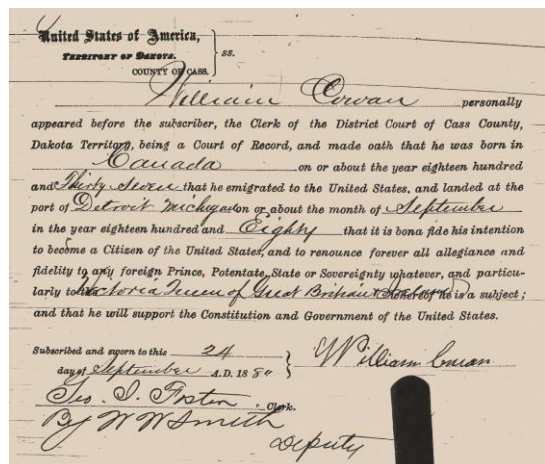 United States of America,
TERRITORY OF DAKOTA.
COUNTY OF CASS.
ss.
William Cowan personally
appeared before the subscriber, the Clerk of the District Court of Cass County,
Dakota Territory, being a Court of Record, and made oath that he was born in
Canada on or about the year eighteen hundred
and Thirty Seven that he emigrated to the United States, and landed at the
port of Detroit Michigan on or about the month of September
in the year eighteen hundred and Eighty that it is bona fide his intention
to become a Citizen of the United States, and to renounce forever all allegiance and
fidelity to any foreign Prince, Potentate, State or Sovereignty whatever, and particu-
larly to Victoria Queen of Great Britain & Ireland whereof he is a subject;
and that he will support the Constitution and Government of the United States.
Subscribed and sworn to this 24
day of September A.D. 1880
William Cowan
Geo. I. Foster Clerk.
By W W Smith
Deputy